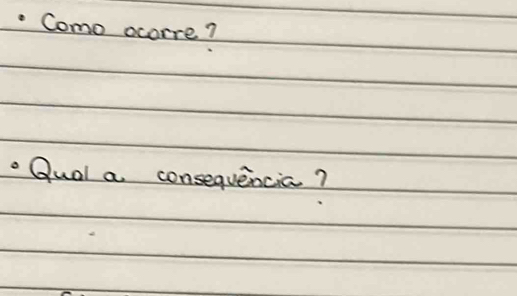 • Como ocorre?
• Qual a consequência?